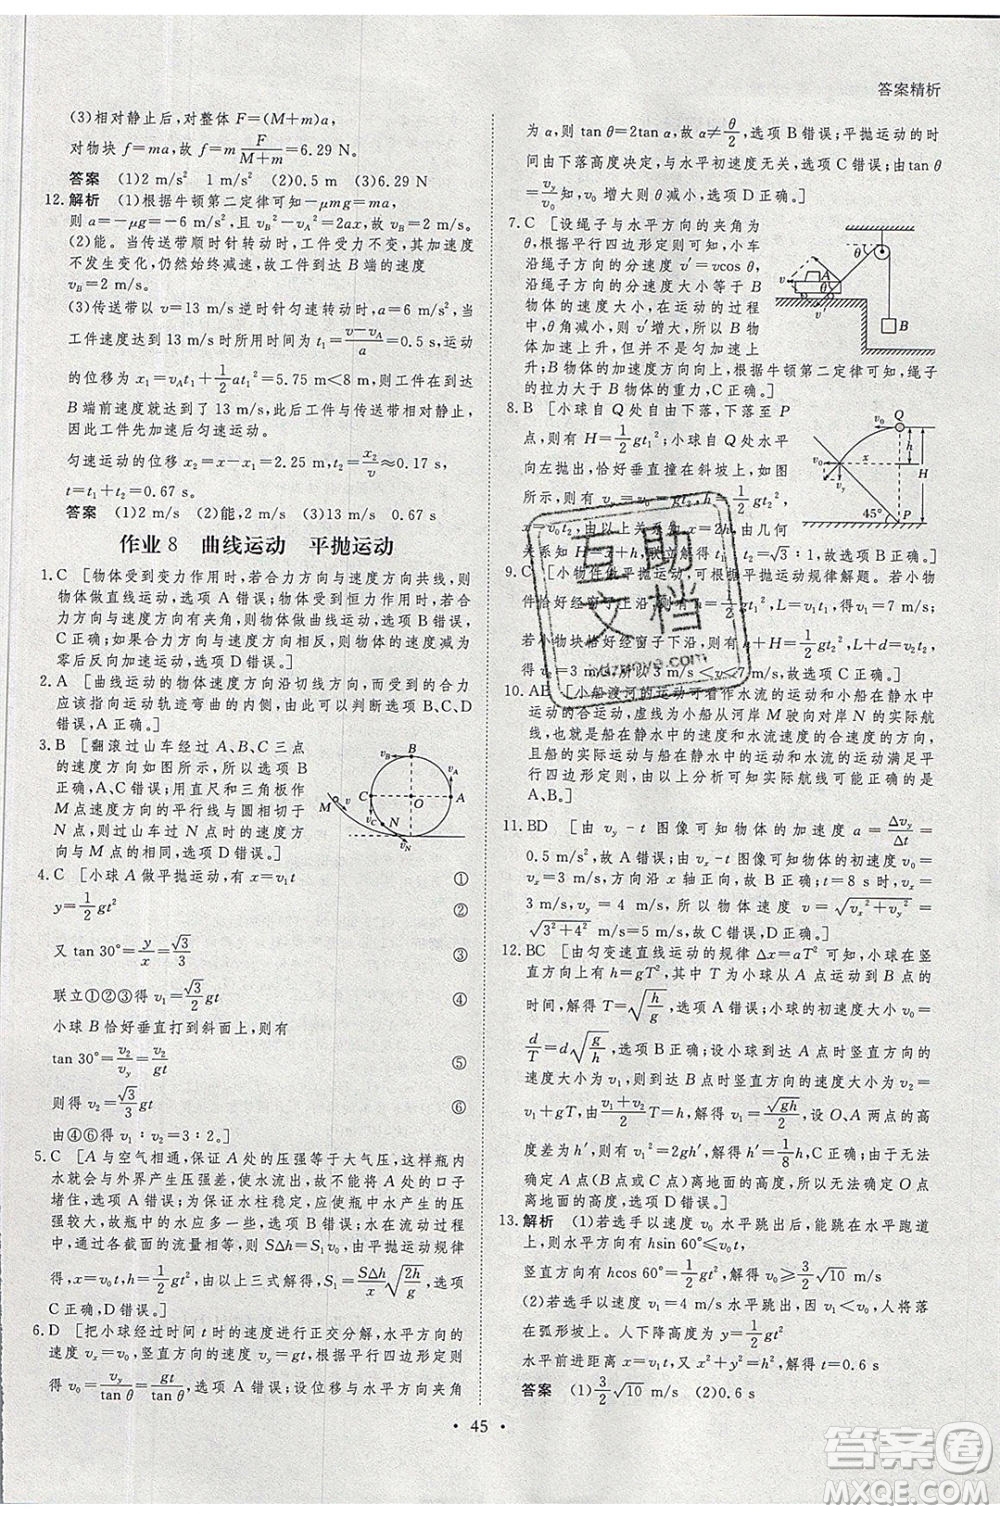 答案精析
(3)相对静止后,对整体 F=(M+m)a,
对物块 f=ma,故 f=m F/(M+m)=6.29 N。
答案 (1)2 m/s² 1 m/s² (2)0.5 m (3)6.29 N
12.解析 (1)根据牛顿第二定律可知 -μmg=ma,
则 a=-μg=-8 m/s²,且 v_B²-v_A²=2ax,故 v_B=2 m/s。
(2)能。当传送带顺时针转动时,工件受力不变,其加速度
不发生变化,仍然始终减速,故工件到达 B 端的速度
v_B=2 m/s。
(3)传送带以 v=13 m/s 逆时针匀速转动时,工件加速,
工件速度达到 13 m/s 所用时间为 t₁=(v-v_A)/a=0.5 s,运动
的位移为 x₁=v_At₁+1/2 at₁²=5.75 m<8 m,则工件在到达
B 端前速度就达到了 13 m/s,此时工件与传送带相对静止,
因此工件先加速后匀速运动。
匀速运动的位移 x₂=x-x₁=2.25 m,t₂=x₂/v≈0.17 s,
t=t₁+t₂=0.67 s。
答案 (1)2 m/s (2)能,2 m/s (3)13 m/s 0.67 s
作业 8 曲线运动 平抛运动
1.C [物体受到变力作用时,若合力方向与速度方向共线,则
物体做直线运动,选项A错误;物体受到恒力作用时,若合
力方向与速度方向有夹角,则物体做曲线运动,选项
B错误,选项C正确;做曲线运动的物体的速度减为
零后反向运动,选项D错误。]
2.A [做曲线运动的物体速度方向沿切线方向,而受到的合力
应该指向运动轨迹弯曲的内侧,由此可以判断选项B、C、D
错误,A正确。]
3.B [翻滚过山车经过A、B、C三点
的速度方向如图所示,选项B正确,
C错误;用直尺和三角板作
M点速度方向的平行线且与
N点相交,则过山车经过
N点时的速度方向与
M点的相同,选项A、D错误。]
4.C [小球 A 做平抛运动,有 x=v₁t ①
y=1/2 gt² ②
又 tan 30°=y/x=√3/3 ③
联立①②③得 v₁=√3/2 gt ④
小球 B 恰好垂直打到斜面上,有
tan 30°=v₂/v_y=v₂/gt ⑤
则得 v₂=√3/3 gt ⑥
由④⑥得 v₁∶v₂=3∶2。]
5.C [A与空气相通,保证 A 处的压强等于大气压,这样瓶内
水就会与外界产生压强差,使水流出,若将 A 处的口子
堵住,选项A错误;为保证水柱稳定,应使瓶中的水多一些,选项B错误;
x=v₀t,h=1/2 gt²,由以上三式解得,S₁=SΔh/x √(2h/g),选项
C正确,D错误。]
6.D [把小球经过时间 t 时的速度进行正交分解,水平方向的
速度 v_x=v₀,竖直方向的速度 v_y=gt,根据平行四边形定则
得 v₀=v_y/tan θ=gt/tan θ,选项A错误;设位移与水平方向夹角
为 α,则 tan θ=2tan α,α≠θ/2,选项B错误;平抛运动的时
间由下落高度决定,与水平初速度无关,选项C错误;由 tan θ
=v_y/v₀知,v₀增大则 θ 减小,选项D正确。]
7.C [设绳子与水平方向的夹角为 θ,
根据平行四边形定则可知,小车
沿绳子方向的分速度 v′=vcos θ,
沿绳子方向的分速度大小等于B
物体的速度大小,在运动的过程
中,θ角减小,则 v′增大,所以B物体加速上
升;B物体的加速度方向向上,根据牛顿第二定律可知,绳子
的拉力大于 B 物体的重力,C正确。]
8.B [小球自 Q 处自由下落,下落至 P
点,则有 H=1/2 gt₁²;小球自 Q 处水平
向左抛出,恰好垂直撞在斜坡上,如图
所示,则有 v_y=gt₂,h=1/2 gt₂²,
x=v₀t₂,由几何
关系知
9.C [小物件做平抛运动,根据平抛运动规律解题。若小物
件恰好经窗子上沿,则有 h=1/2 gt₁²,L=v₁t₁,得 v₁=7 m/s;
若小物块恰好经窗子下沿,则有 h+H=1/2 gt₂²,L+d=v₂t₂,
得 v₂=3 m/s,所以3 m/s<v<7 m/s,选项C正确。]
10.AB [小船渡河的运动可看作水流的运动和小船在静水中
运动的合运动,虚线为小船从河岸 M 驶向对岸 N 的实际航
线,即合速度的方向,小船在静水中的速度和水流速度的合速度的方向,
且船的实际运动与船在静水中的运动和水流的运动满足平
行四边形定则,结合上述分析可知实际航线可能正确的是
A、B。]
11.BD [由 v_y-t 图像可知物体的加速度 a=Δv_y/Δt=
0.5 m/s²,故A错误;由 v_x-t 图像可知物体的初速度 v₀=
v_x=3 m/s,方向沿 x 轴正向,故B正确;t=8 s 时,v_x=
3 m/s,v_y=4 m/s,所以物体速度 v=√(v_x²+v_y²)=
√(3²+4²) m/s=5 m/s,故C错误,D正确。]
12.BC [由匀变速直线运动的规律 Δx=aT² 可知,小球在竖
直方向做自由落体运动,h=gT²,则小球从 A 点运动到 B 点的
时间,解得 T=√(h/g),选项A错误;小球的初速度大小 v₀=
d/T=d√(g/h),选项B正确;设小球到达 A 点时竖直方向的
速度大小为 v₁,则到达 B 点时竖直方向的速度大小 v₂=
v₁+gT,h=(v₁+v₂)/2 T,解得 v₁=√(gh)/2,设 O、A 两点的高
度差为 h′,则有 v₁²=2gh′,解得 h′=1/8 h,选项C正确;无法
确定 A 点(或 B 点)离地面的高度,所以也无法确定 O 点
离地面的高度,选项D错误。]
13.解析 (1)若选手以速度 v₀ 水平跳出后,能跳在水平跑道
上,则水平方向有 hsin 60°≤v₀t,
竖直方向有 hcos 60°=1/2 gt²,解得 v₀≥3/2 √10 m/s
(2)若选手以速度 v₁=4 m/s 水平跳出,因 v₁<v₀,人将落
在弧形坡上。人下降高度为 y=1/2 gt²
水平前进距离 x=v₁t,又 x²+y²=h²,解得 t=0.6 s
答案 (1)3/2 √10 m/s (2)0.6 s
· 45 ·
互助文档
答案圈
MXQE.COM